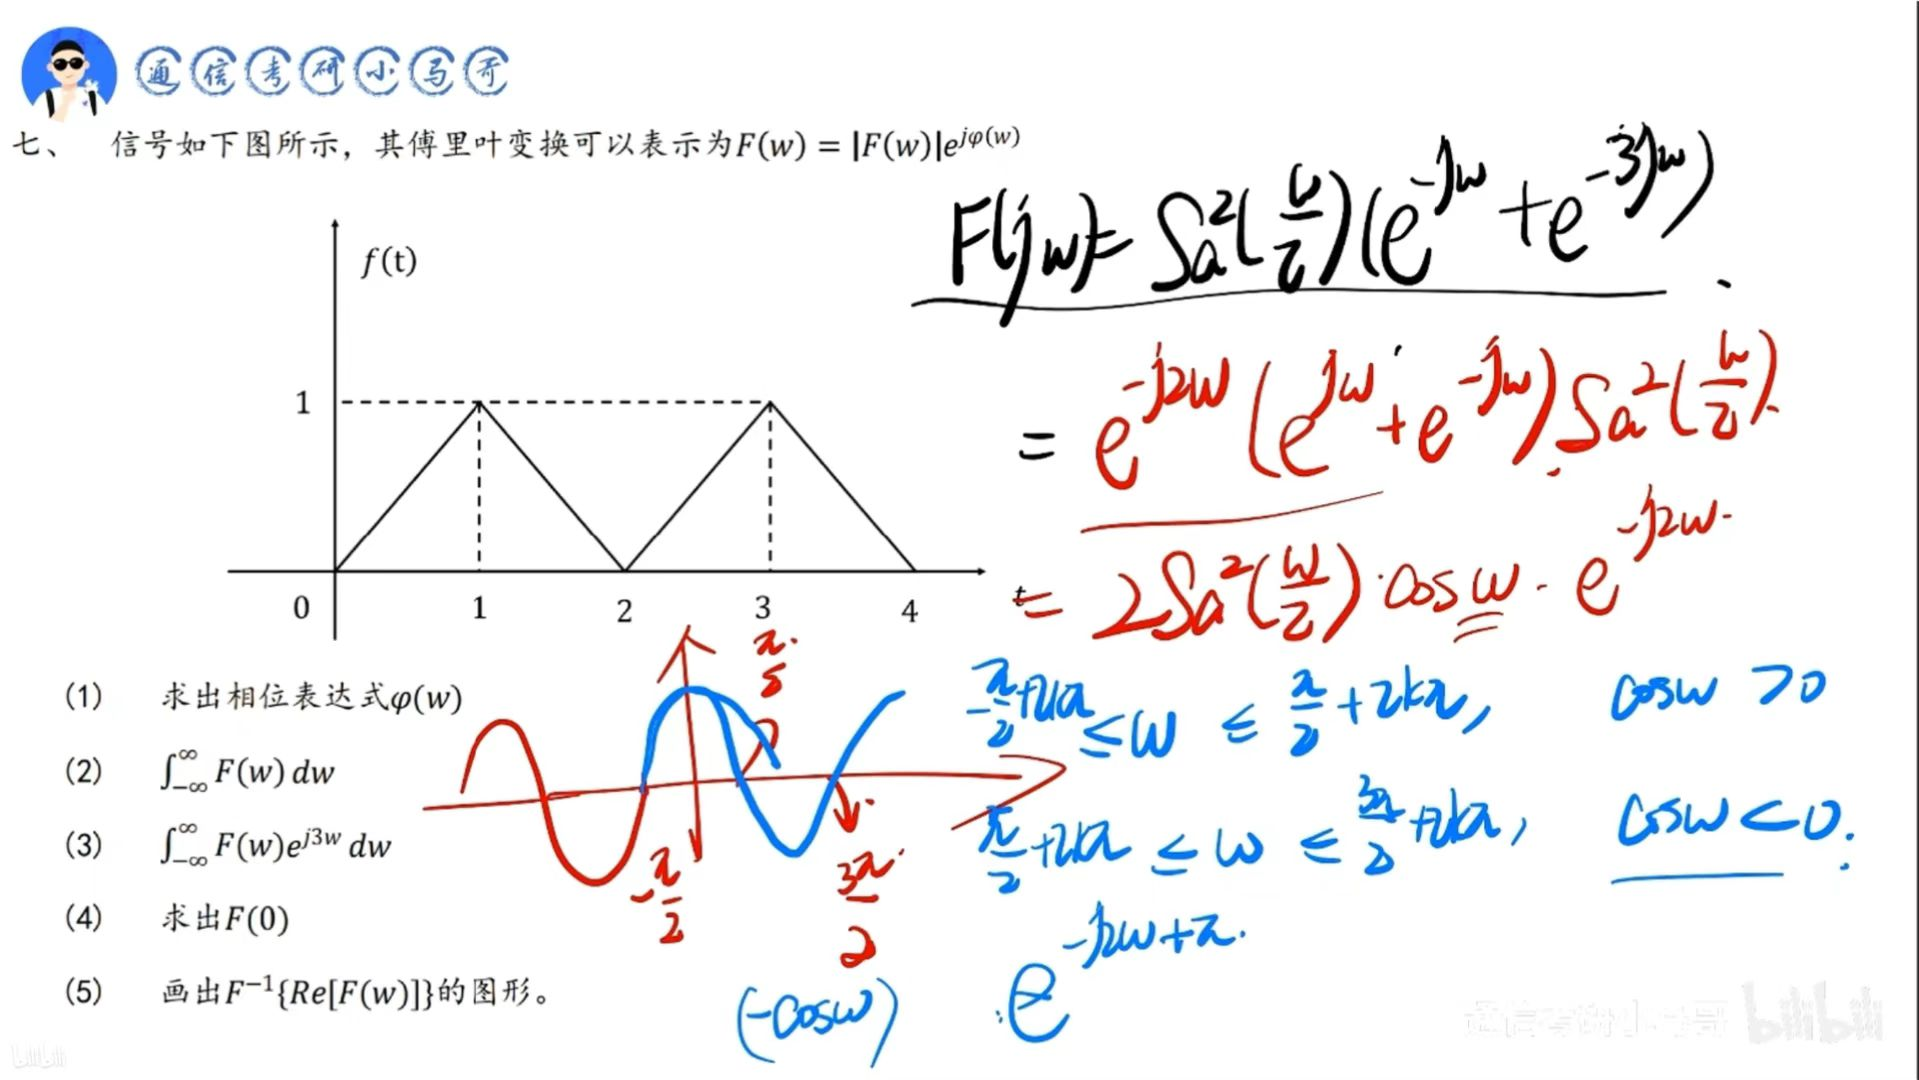 通信考研小马哥
七、 信号如下图所示，其傅里叶变换可以表示为F(w) = |F(w)|e^{jφ(w)}
f(t)
1
0 1 2 3 4 t
(1) 求出相位表达式φ(w)
(2) ∫_{-∞}^{∞} F(w) dw
(3) ∫_{-∞}^{∞} F(w)e^{j3w} dw
(4) 求出F(0)
(5) 画出F^{-1}{Re[F(w)]}的图形。
F(jw) = Sa²(w/2)(e^{-jw} + e^{-3jw})
= e^{-j2w}(e^{jw} + e^{-jw})Sa²(w/2).
= 2Sa²(w/2)·cosw·e^{-j2w}
-π/2+2kπ ≤ w ≤ π/2+2kπ, cosw > 0
π/2+2kπ ≤ w ≤ 3π/2+2kπ, cosw < 0.
π/2
-π/2
3π/2
(-cosw) e^{-j2w+π}.
通信考研小马哥 bilibili
bilibili